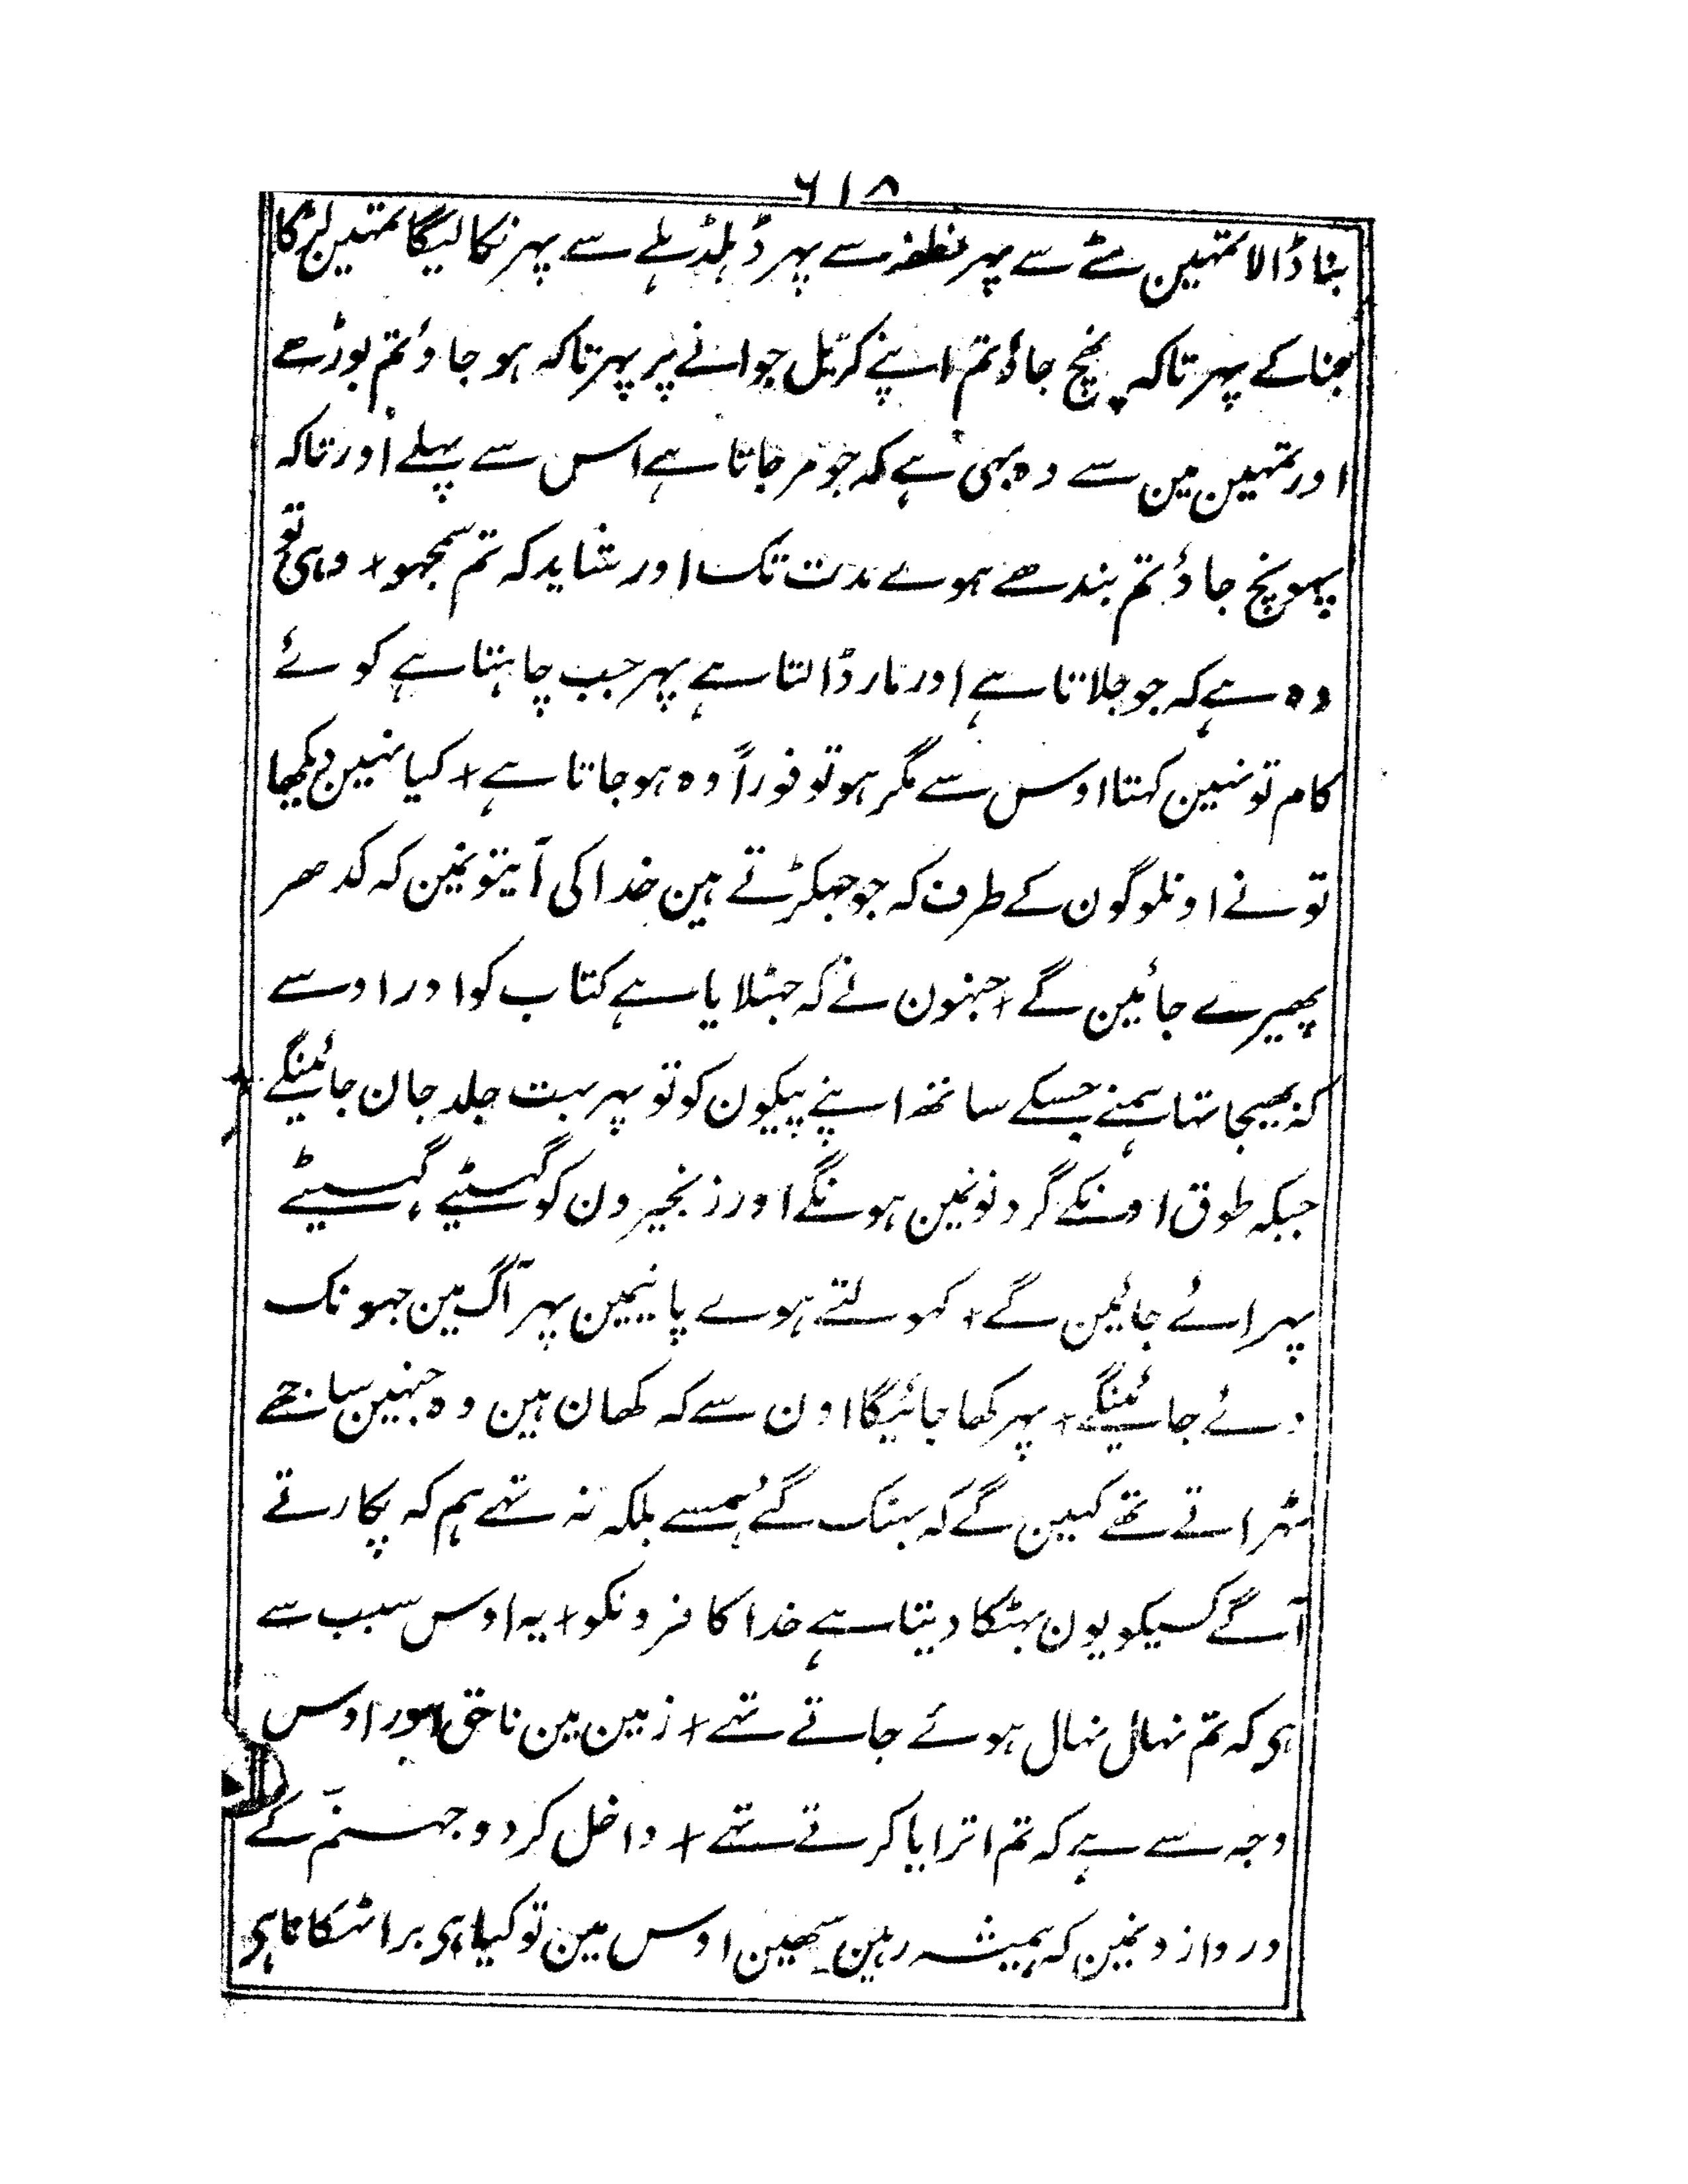 ۶۱۸
بنا ڈالا تمہین مٹے سے پہر نطفہ سے پہر ڈہلڈہلے سے پہر نکالیگا تمہین لڑکا
جنا کے پہر تاکہ پہنچ جاؤ تم اپنے کڑیل جوانے پر پہر تاکہ ہو جاؤ تم بوڑھے
اور تمہین مین سے وہ بہی ہے کہ جو مر جاتا ہے اس سے پہلے اور تاکہ
پہونچ جاؤ تم بندھے ہوے مدت تک اور شاید کہ تم سمجہو + وہی تو
وہ ہے کہ جو جلاتا ہے اور مار ڈالتا ہے پہر جب چاہتا ہے کوئے
کام تو نہین کہتا اوس سے مگر ہو تو فوراً وہ ہو جاتا ہے + کیا نہین دیکھا
تو نے اونلوگون کے طرف کہ جو جہگڑتے ہین خدا کی آیتونمین کہ کدھر
پھیرے جائین گے + جنہون نے کہ جہٹلایا ہے کتاب کو اور اوسے
کہ بھیجا تہا ہمنے جسکے ساتھ اپنے پیکون کو تو پہر بہت جلد جان جائینگے
جبکہ طوق اونکے گردنونمین ہونگے اور زنجیرون کو گہسیٹے گہسیٹے
پہرائے جائین گے + کہولتے ہوے پانیمین پہر آگ مین جہونک
دئے جائینگے + پہر کھا جائیگا اون سے کہ کھان ہین وہ جنہین ساجھے
ٹہراتے تھے کہین گے کہ بہٹک گئے ہمسے بلکہ نہ تہے ہم کہ پکارتے
آگے کسیکو یون بہٹکا دیتا ہے خدا کافرونکو + یہ اوس سبب سے
ہی کہ تم نہال نہال ہوئے جاتے تہے + زمین مین ناحق اور اوس
وجہ سے ہے کہ تم اترایا کرتے تہے + داخل کردو جہنم کے
دروازونمین کہ ہمیشہ رہین اوس مین تو کیا ہی برا ٹہکانا ہی